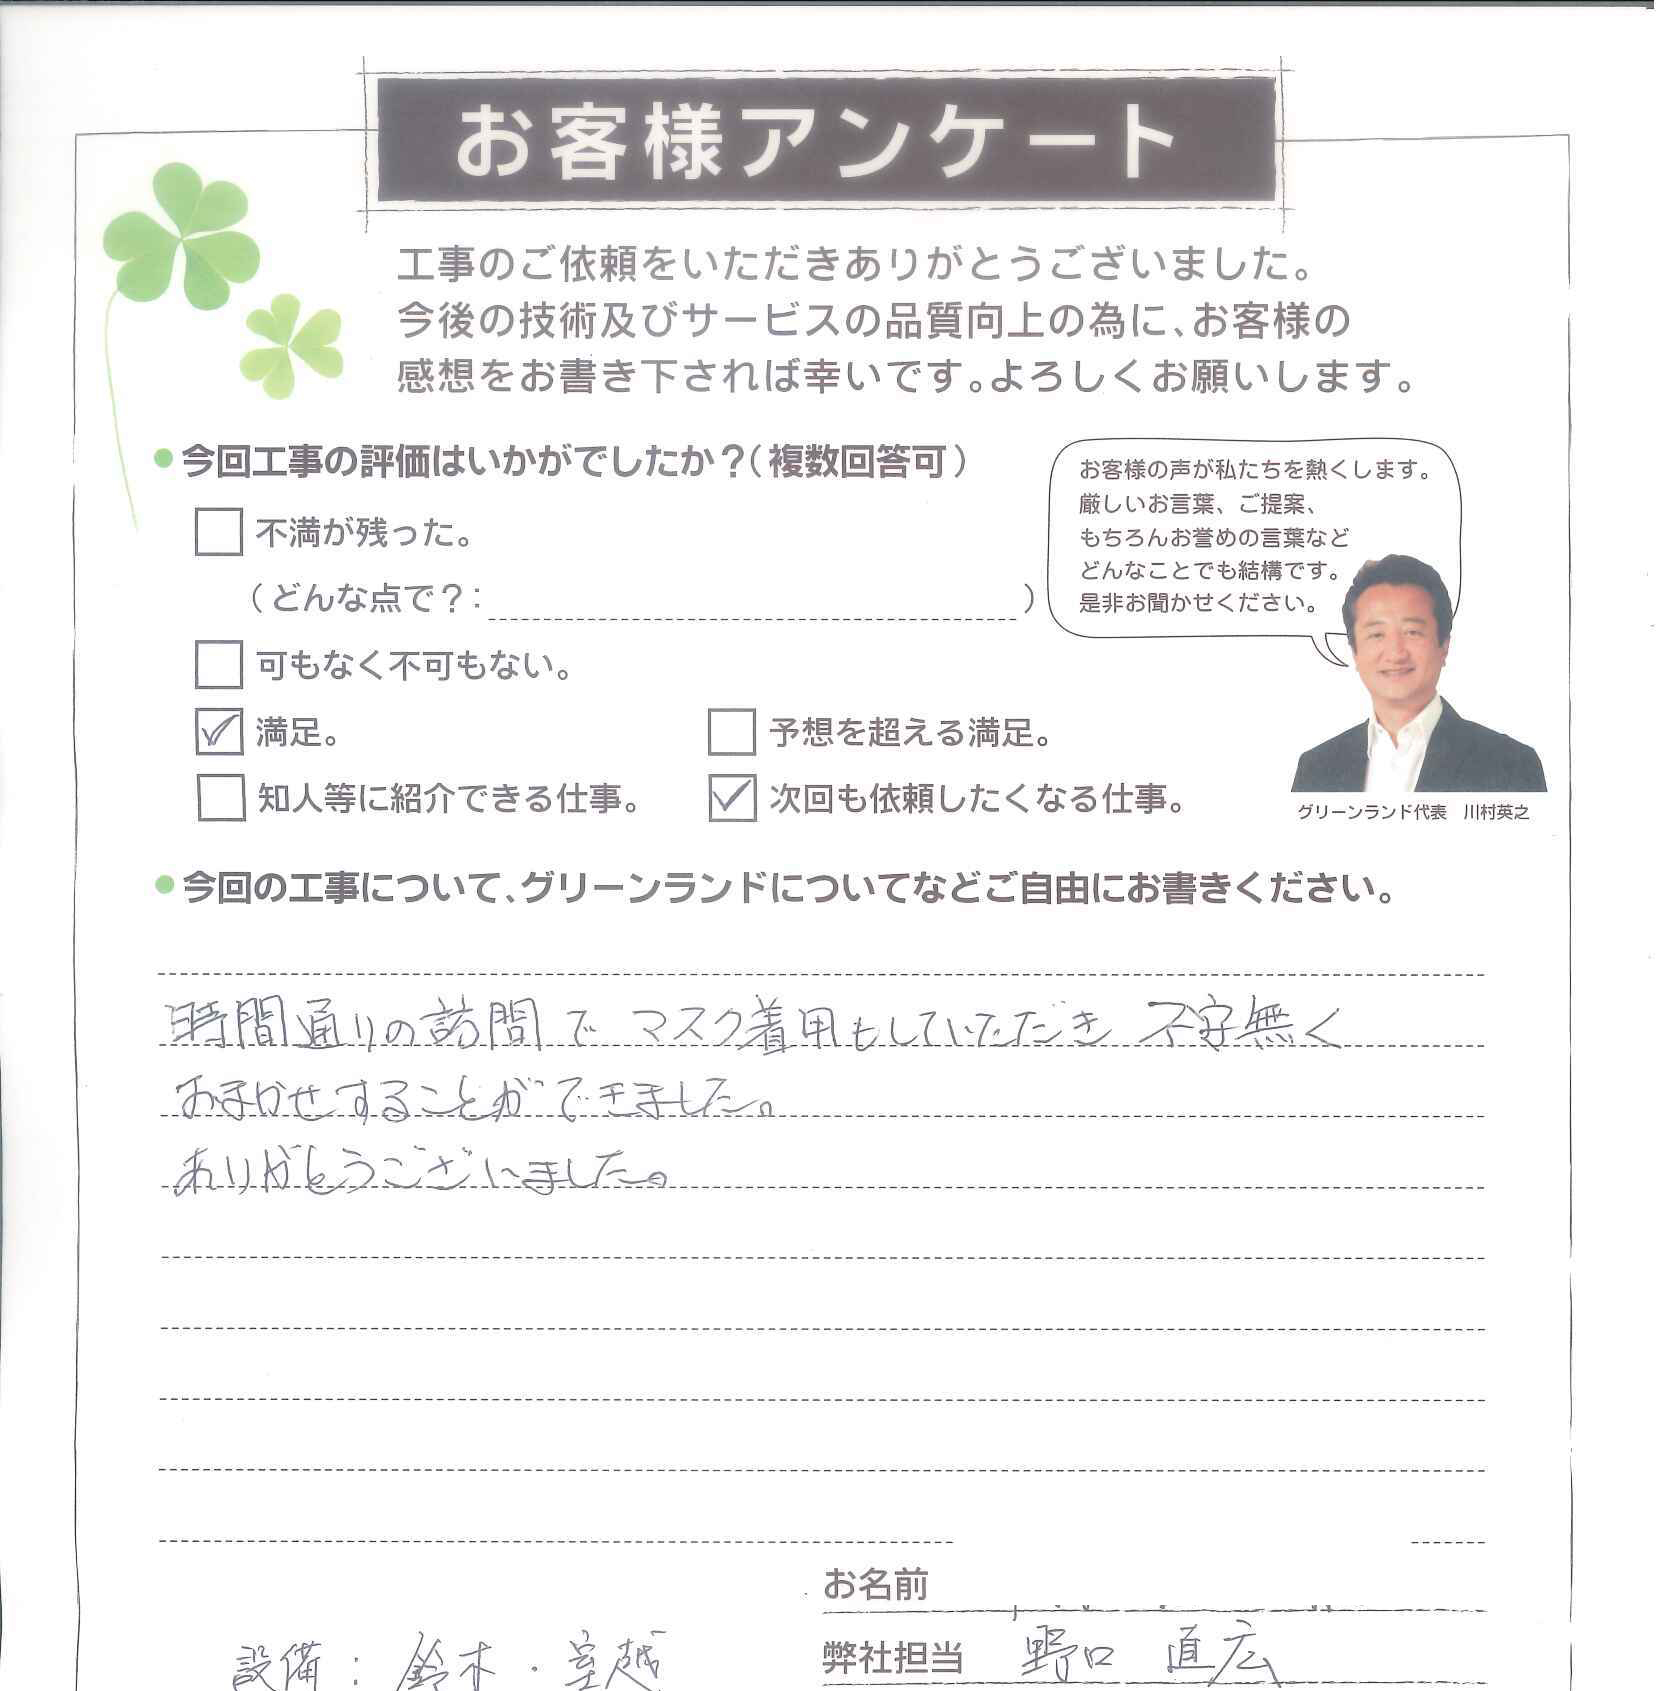 お客様アンケート
工事のご依頼をいただきありがとうございました。
今後の技術及びサービスの品質向上の為に、お客様の
感想をお書き下されば幸いです。よろしくお願いします。
●今回工事の評価はいかがでしたか？(複数回答可)
不満が残った。
(どんな点で？: )
可もなく不可もない。
満足。
予想を超える満足。
知人等に紹介できる仕事。
次回も依頼したくなる仕事。
お客様の声が私たちを熱くします。
厳しいお言葉、ご提案、
もちろんお誉めの言葉など
どんなことでも結構です。
是非お聞かせください。
グリーンランド代表 川村英之
●今回の工事について、グリーンランドについてなどご自由にお書きください。
時間通りの訪問で マスク着用もしていただき 不安無く
おまかせすることができました。
ありがとうございました。
お名前
弊社担当 野口 直広
設備：鈴木・室越